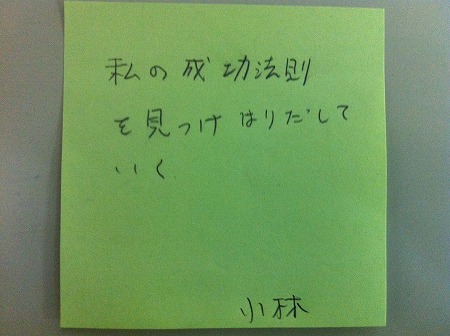 私の成功法則
を見つけはりだして
いく
小林